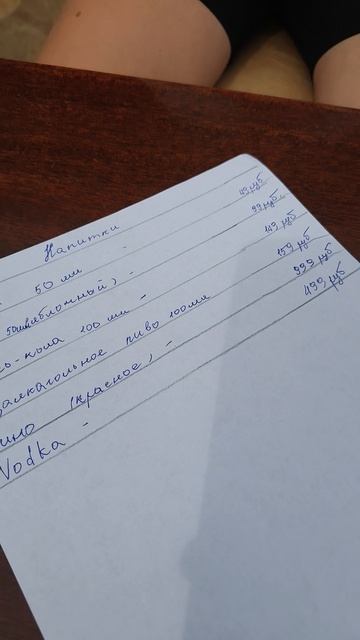 Напитки
50 мл - 49 руб
50мл яблочный) - 99 руб
ь-кола 100 мл - 149 руб
залкогольное пиво 100мл 159 руб
ино (красное) - 999 руб
Vodka - 499 руб